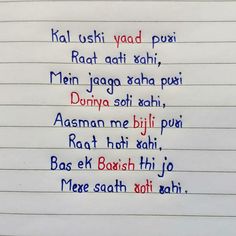 Kal uski yaad puri
Raat aati rahi,
Mein jaaga raha puri
Duniya soti rahi,
Aasman me bijli puri
Raat hoti rahi,
Bas ek Barish thi jo
Mere saath roti rahi.